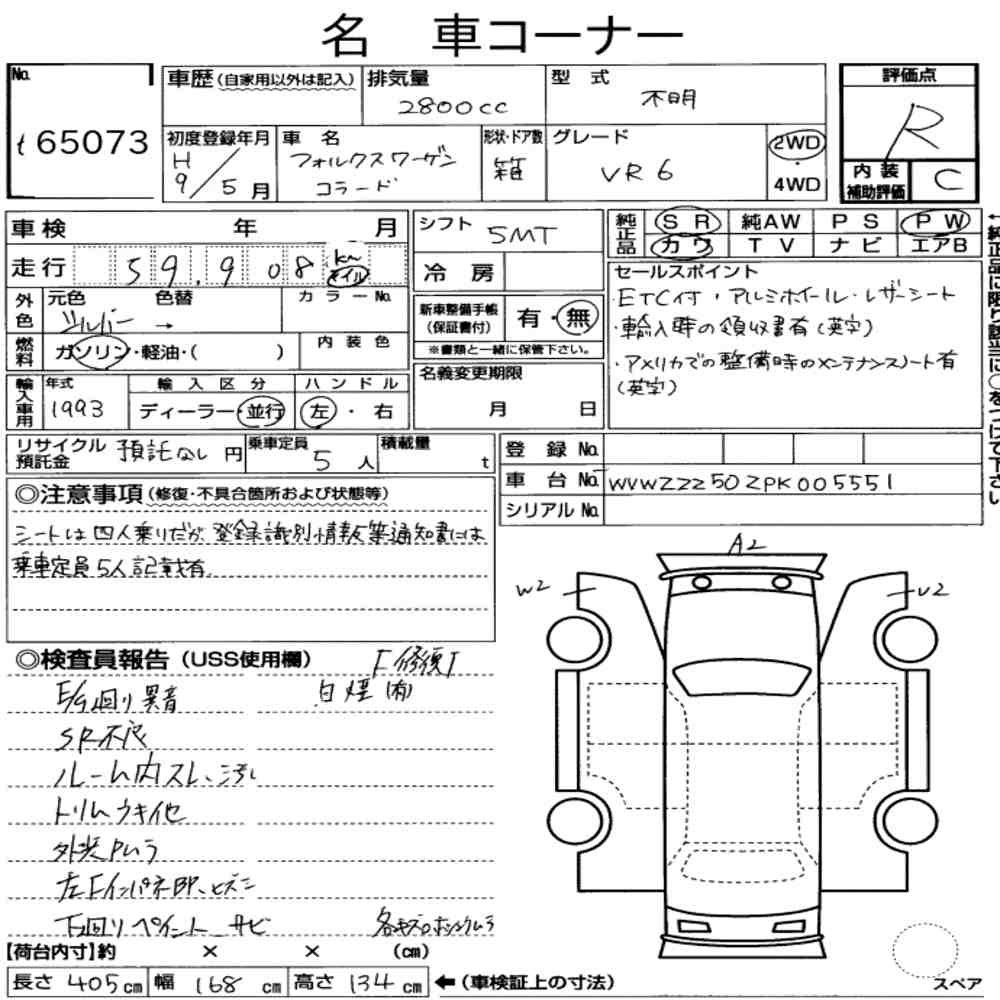 名 車コーナー
No. t 65073
車歴(自家用以外は記入) 排気量 2800cc 型式 不明
評価点 R
初度登録年月 H9/5月 車名 フォルクスワーゲン コラード 形状・ドア数 箱 グレード VR6 2WD・4WD
内装補助評価 C
車検 年 月
走行 59,908 km マイル
外色 元色 シルバー 色替 → カラーNo.
燃料 ガソリン・軽油・( ) 内装色
輸入車用 年式 1993 輸入区分 ディーラー・並行 ハンドル 左・右
シフト 5MT
冷房
新車整備手帳(保証書付) 有・無
※書類と一緒に保管下さい。
名義変更期限 月 日
純正品 SR 純AW PS PW
カワ TV ナビ エアB
←純正品に限り該当に○をつけて下さい
セールスポイント
・ETC付・アルミホイール・レザーシート
・輸入時の領収書有(英字)
・アメリカでの整備時のメンテナンスノート有
(英字)
リサイクル預託金 預託なし 円 乗車定員 5人 積載量 t
登録No.
車台No. WVWZZZ50ZPK005551
シリアルNo.
◎注意事項(修復・不具合箇所および状態等)
シートは四人乗りだが、登録識別情報等通知書には
乗車定員5人記載有
◎検査員報告(USS使用欄)
「修復」
E/G廻り異音 白煙(有)
SR不良
ルーム内スレ、汚れ
トリムウキ他
外装ムラ
左Fインパネ部、ヒズミ
下廻りペイント サビ
A2
W2
U2
【荷台内寸】約 × × (cm)
長さ 405cm 幅 168cm 高さ 134cm ←(車検証上の寸法)
スペア